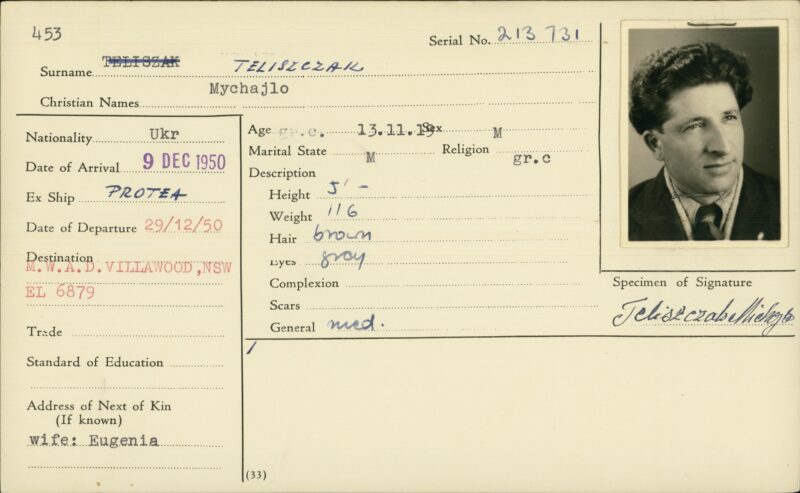 453
Serial No. 213 731
TELISZAK
Surname TELISZCZAK
Mychajlo
Christian Names
Nationality Ukr
Date of Arrival 9 DEC 1950
Ex Ship PROTEA
Date of Departure 29/12/50
Destination
M.W.A.D. VILLAWOOD, NSW
EL 6879
Trade
Standard of Education
Address of Next of Kin
(If known)
wife: Eugenia
Age gr.c. 13.11.19 Sex M
Marital State M Religion gr.c
Description
Height 5' -
Weight 116
Hair brown
Eyes gray
Complexion
Scars
General med.
(33)
Specimen of Signature
Teliszczak